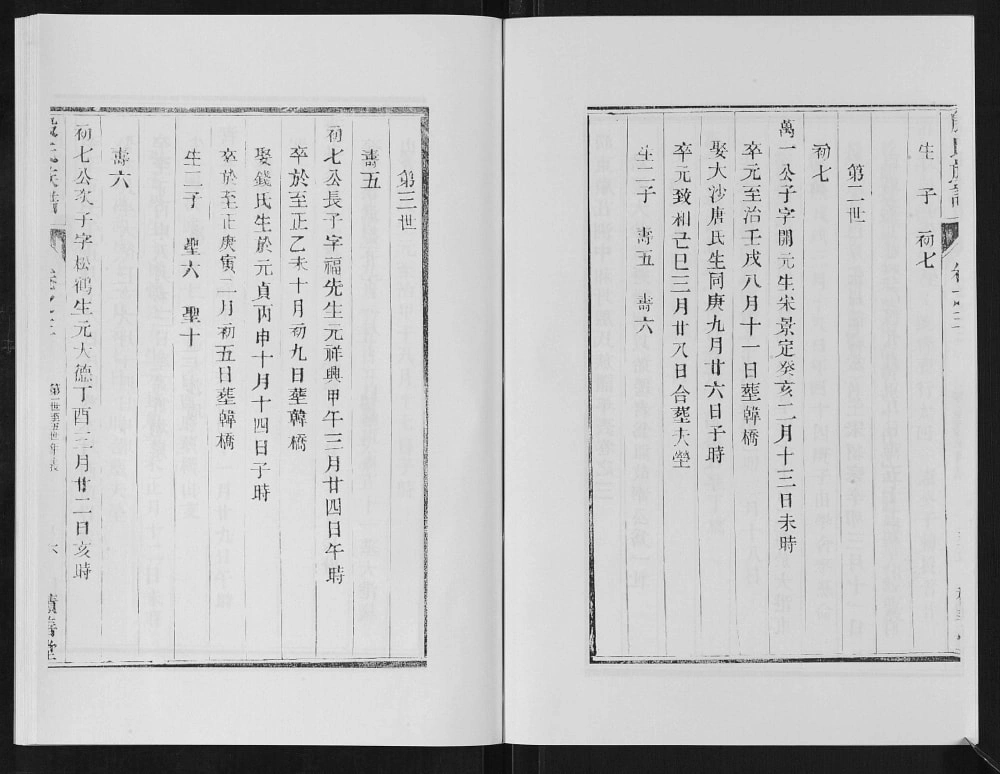 生一子　初七
第二世
初七
萬一公子字開元生宋景定癸亥二月十三日未時
卒元至治壬戌八月十一日塟韓橋
娶大沙唐氏生同庚九月廿六日子時
卒元致和己巳三月廿八日合塟大塋
生二子　壽五　壽六
第三世
壽五
初七公長子字福先生元祥興甲午三月廿四日午時
卒於至正乙未十月初九日塟韓橋
娶錢氏生於元貞丙申十月十四日子時
卒於至正庚寅二月初五日塟韓橋
生二子　聖六　聖十
壽六
初七公次子字松鶴生元大德丁酉三月廿二日亥時
氏族譜
第一世至五世
六